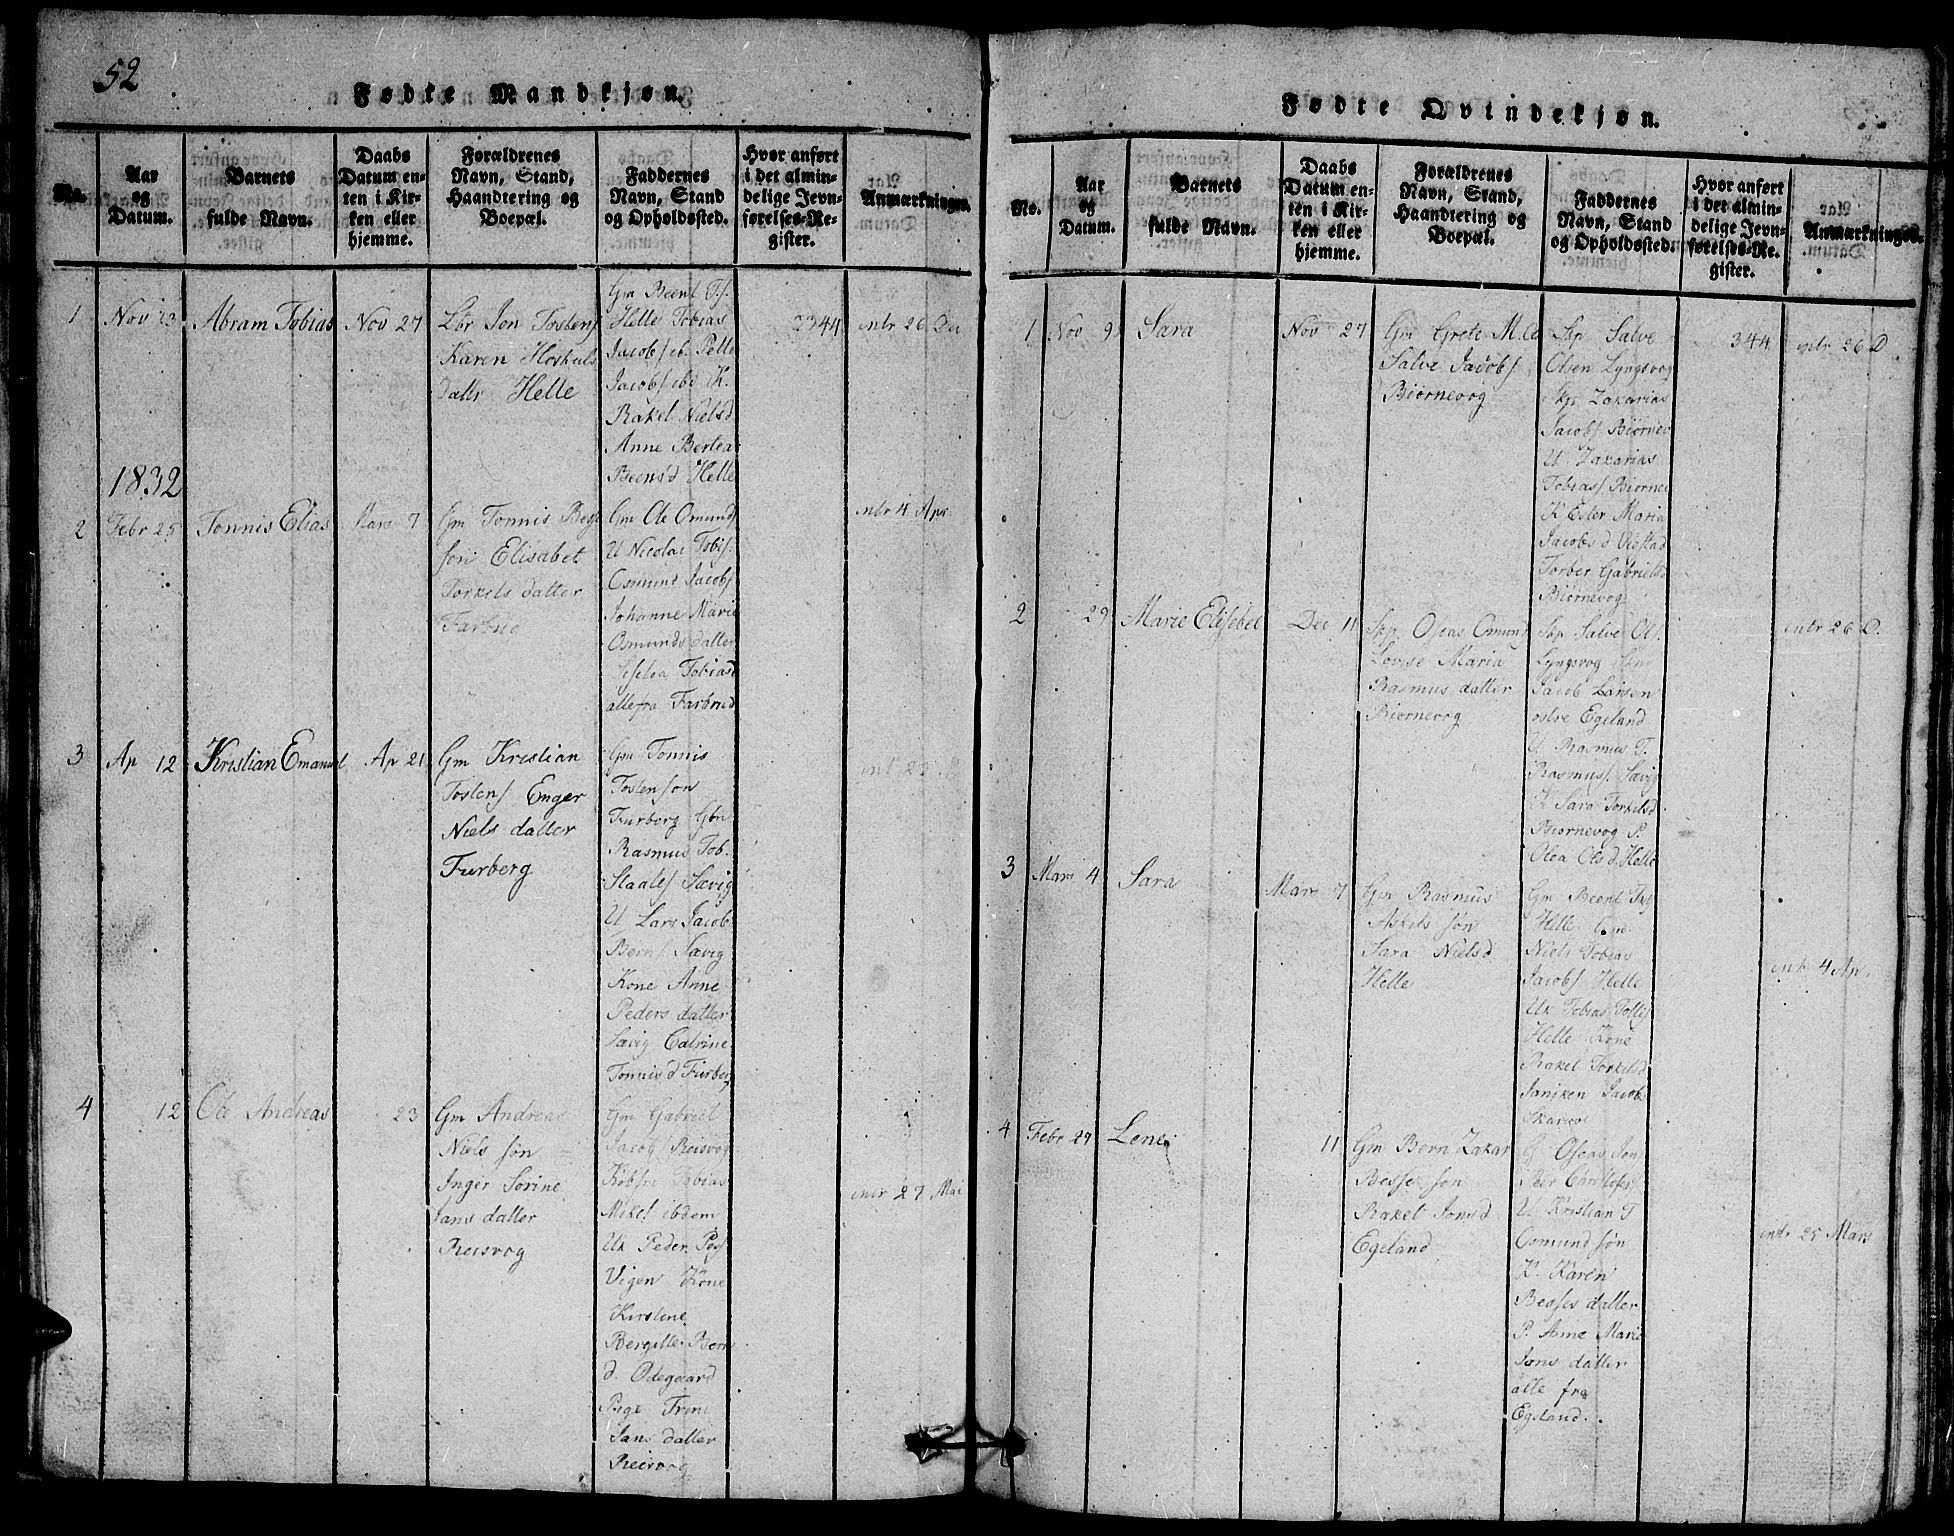 52
Fødte Mandkjøn.
No.
Aar
og
Datum.
Barnets
fulde Navn.
Daabs
Datum en-
ten i Kir-
ken eller
hjemme.
Forældrenes
Navn, Stand,
Haandtering og
Boepæl.
Faddernes
Navn, Stand
og Opholdssted.
Hvor anført
i det almin-
delige Jevn-
førelses-Re-
gister.
Anmærkninger.
1
Nov 23
Abram Tobias
Nov 27
Lbr Jon Tostens
Karen Hoskuls
datter Helle
Gm Beent T.s.
Helle Tobias
Jacobs ib. Pelle
Jacobs ibd K.
Rakel Nielsd
Anne Bertea
Beens'd Helle
3344
intr 26 De
1832
2
Febr 25
Tonnis Elias
Mars 7
Gm Tonnis
søn Elisabet
Torkels datter
Farbue
Gm Ole Omunds
U Nicolai Tobis.
Osmund Jacobs
Johanne Marie
Osmunds datter
Tobiasd
alle fra Farbrud
intr 4 Apr
3
Ap 12
Kristian Emanuel
Ap 21
Gm Kristian
Tostens Enger
Niels datter
Furberg
Gm Tonnis
Tostenson
Furborg Gbn
Rasmus Tob.
Staales Sævig
U Lars Jacob
Berns Sævig
Kone Anne
Peders datter
Sævig Catrine
Tonnis d Furberg
4
12
Ole Andreas
23
Gm Andreas
Niels søn
Inger Sorine
Jans datter
Reisvog
Gm Gabriel
Jacobs Reisvog
Tobias
Mikel ibdem
Uk Peder
Vigen Kone
Kirstene
Bergitte Bern
d. Odegaard
Pige Trine
Jans datter
Reisvog
intr 27 Mai
Fødte Qvindekjøn.
No.
Aar
og
Datum.
Barnets
fulde Navn.
Daabs
Datum en-
ten i Kir-
ken eller
hjemme.
Forældrenes
Navn, Stand,
Haandtering og
Boepæl.
Faddernes
Navn, Stand
og Opholdssted.
Hvor anført
i det almin-
delige Jevn-
førelses-Re-
gister.
Anmærkninger.
1
Nov 9
Sara
Nov 27
Gm Grete
Salve Jacobs
Biørnevog
Skp Salve
Olsen Lyngsvog
Skp. Zakarias
Jacobs Biørnev
U Zakarias
Tobias Biørnev
K Ester Maria
Jacobs d
Torber Gabrielsd
Biørnevog
344
intr 26 D
2
29
Marie Elisebet
Dec 11
Skp. Oseas Omund
Lovise Maria
Rasmus datter
Biørnevog
Skp Salve Ols.
Lyngsvog
Jacob Larsen
ostre Egeland
U Rasmus T.
Rasmuss. Sævig
K Sara Torkelsd
Biørnevog P.
Olea Olsd. Helle
intr 26 D.
3
Mars 4
Sara
Mars 7
Gm Rasmus
Askels søn
Sara Nielsd
Helle
Gm Beent
Helle
Niels Tobias
Jacobs Helle
Uk Tobias
Helle Kone
Rakel Torkelsd
Janiken Jacobs
intr 4 Ap.
4
Febr 27
Lene
11
Gm Bern Zakar
Besse søn
Rakel Jonsd
Egeland
Oseas Jon
Peer Christofer
U Kristian T
Osmund søn
K. Karen
Besses datter
P. Anne Marie
Jons datter
alle fra
Egeland.
intr 25 Mars